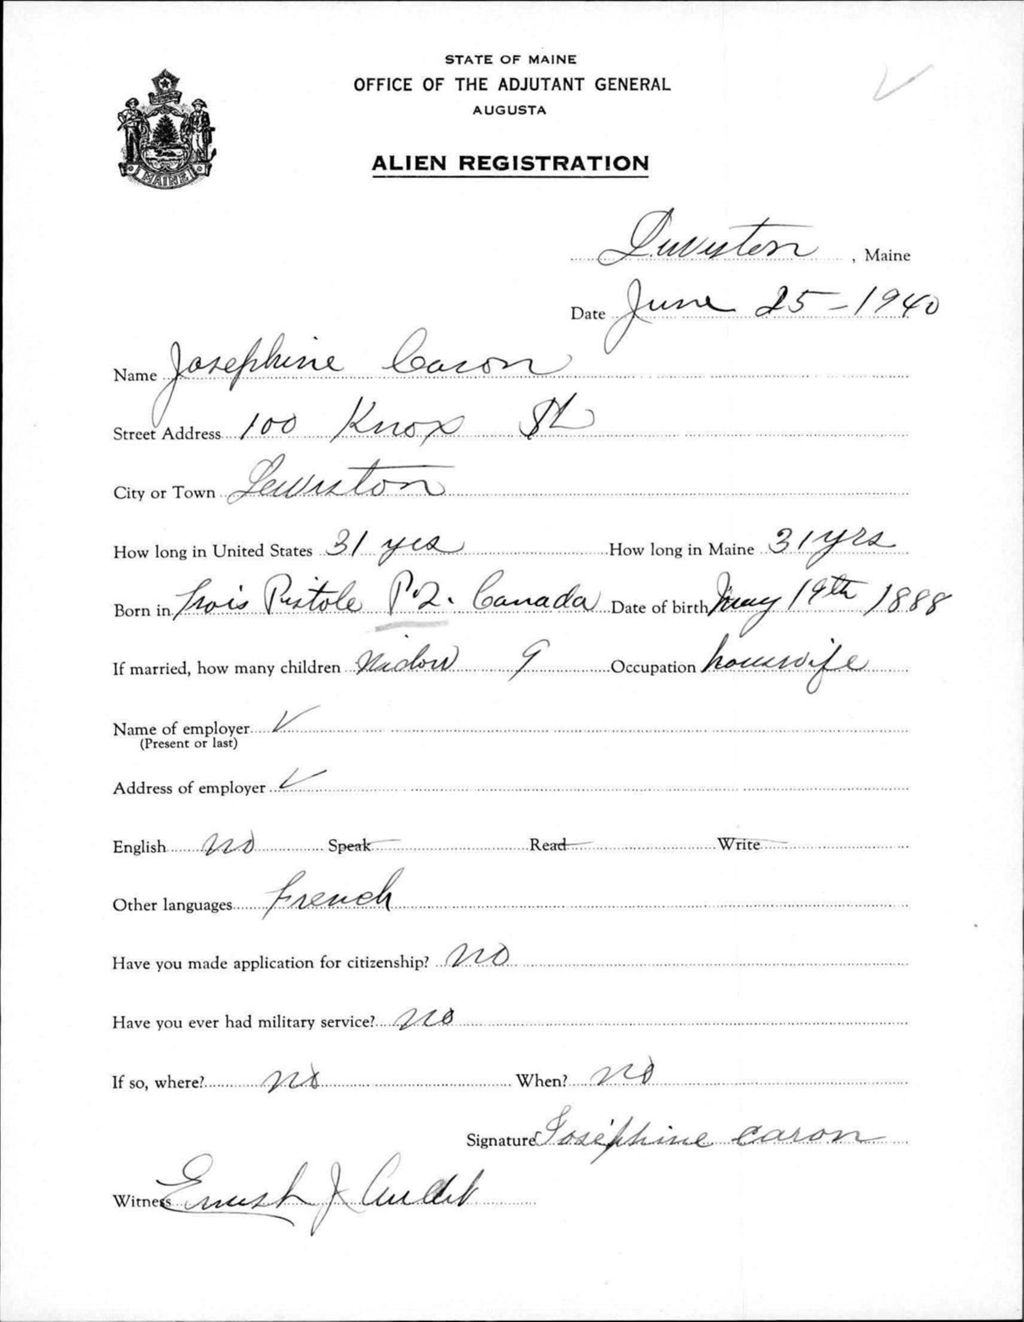 STATE OF MAINE
OFFICE OF THE ADJUTANT GENERAL
AUGUSTA
MAINE
ALIEN REGISTRATION
Lewiston, Maine
Date June 25-1940
Name Josephine Caron
Street Address 100 Knox St
City or Town Lewiston
How long in United States 31 yrs How long in Maine 31 yrs
Born in Trois Pistole P.Q. Canada Date of birth May 19th 1888
If married, how many children Widow 9 Occupation housewife
Name of employer
(Present or last)
Address of employer
English no Speak Read Write
Other languages French
Have you made application for citizenship? no
Have you ever had military service? no
If so, where? no When? no
Signature Joséphine caron
Witness Ernest J Audet